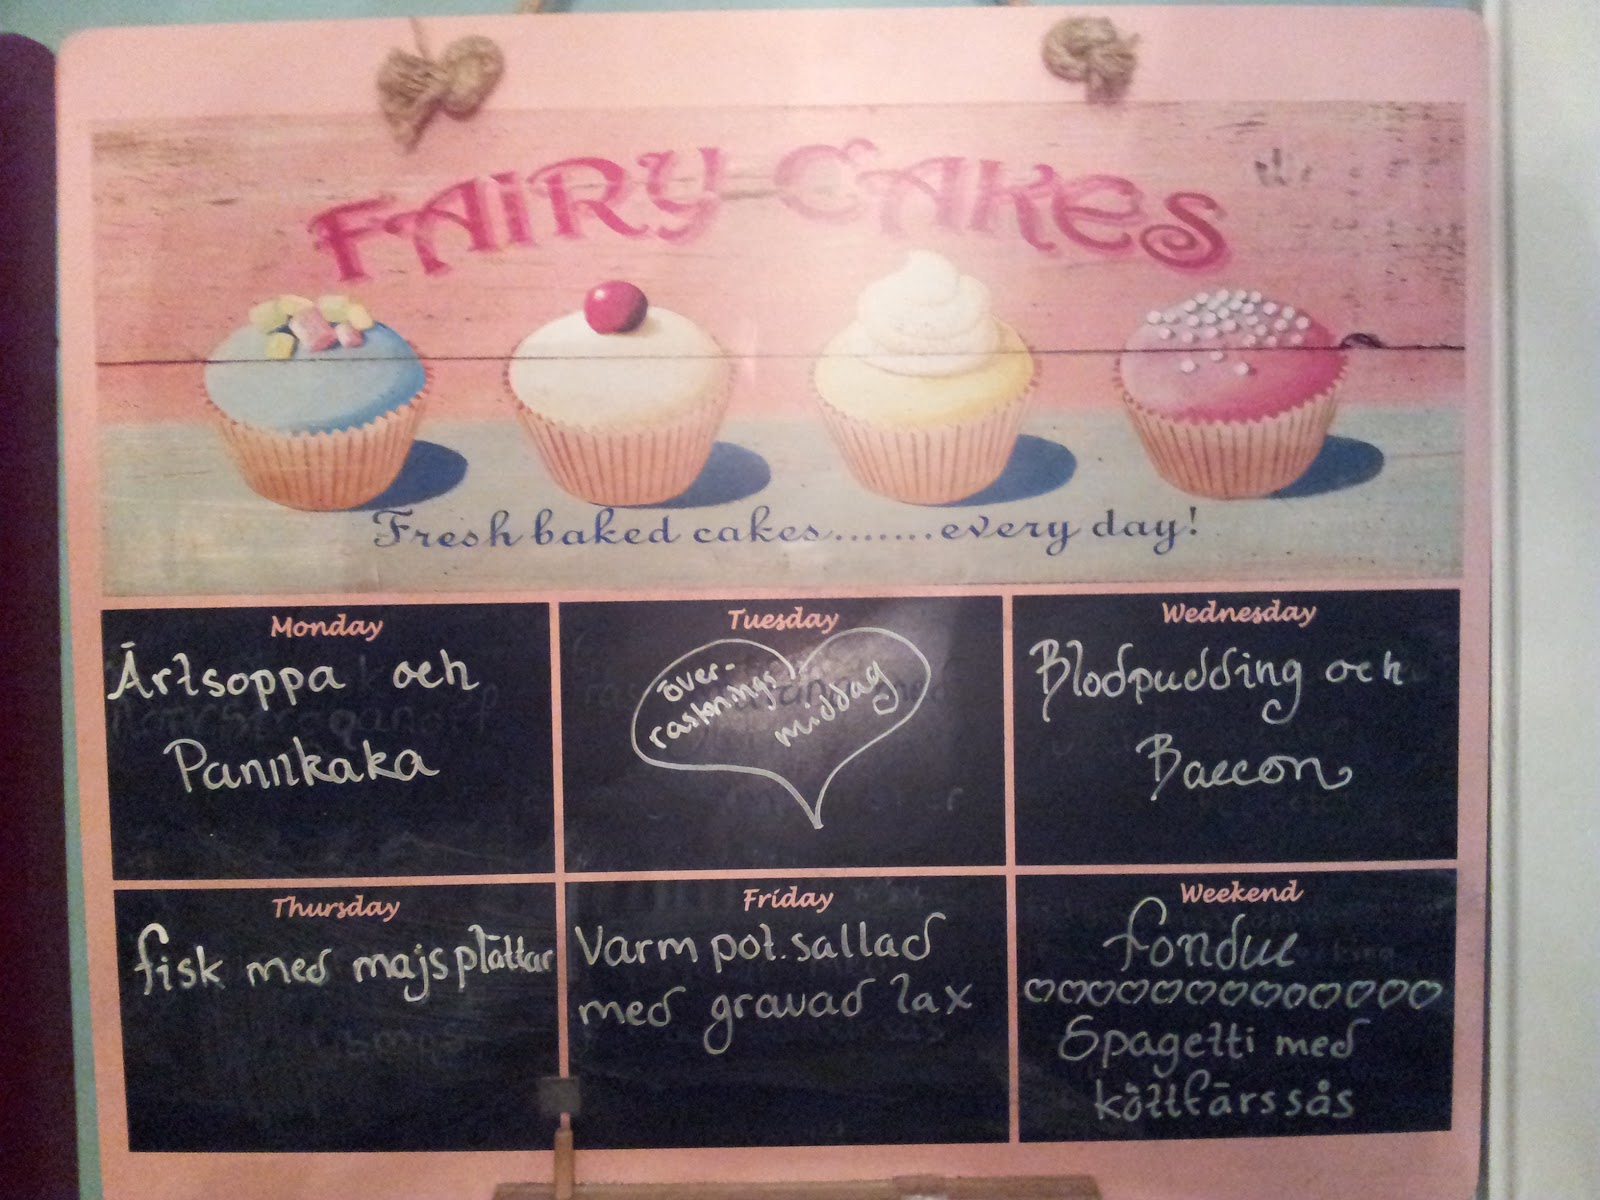 FAIRY CAKES
Fresh baked cakes.......every day!
Monday
Ärtsoppa och
Pannkaka
Tuesday
över-
rasknings
middag
Wednesday
Blodpudding och
Baccon
Thursday
fisk med majsplättar
Friday
Varm pot.sallad
med gravad lax
Weekend
fondue
Spagetti med
köttfärssås